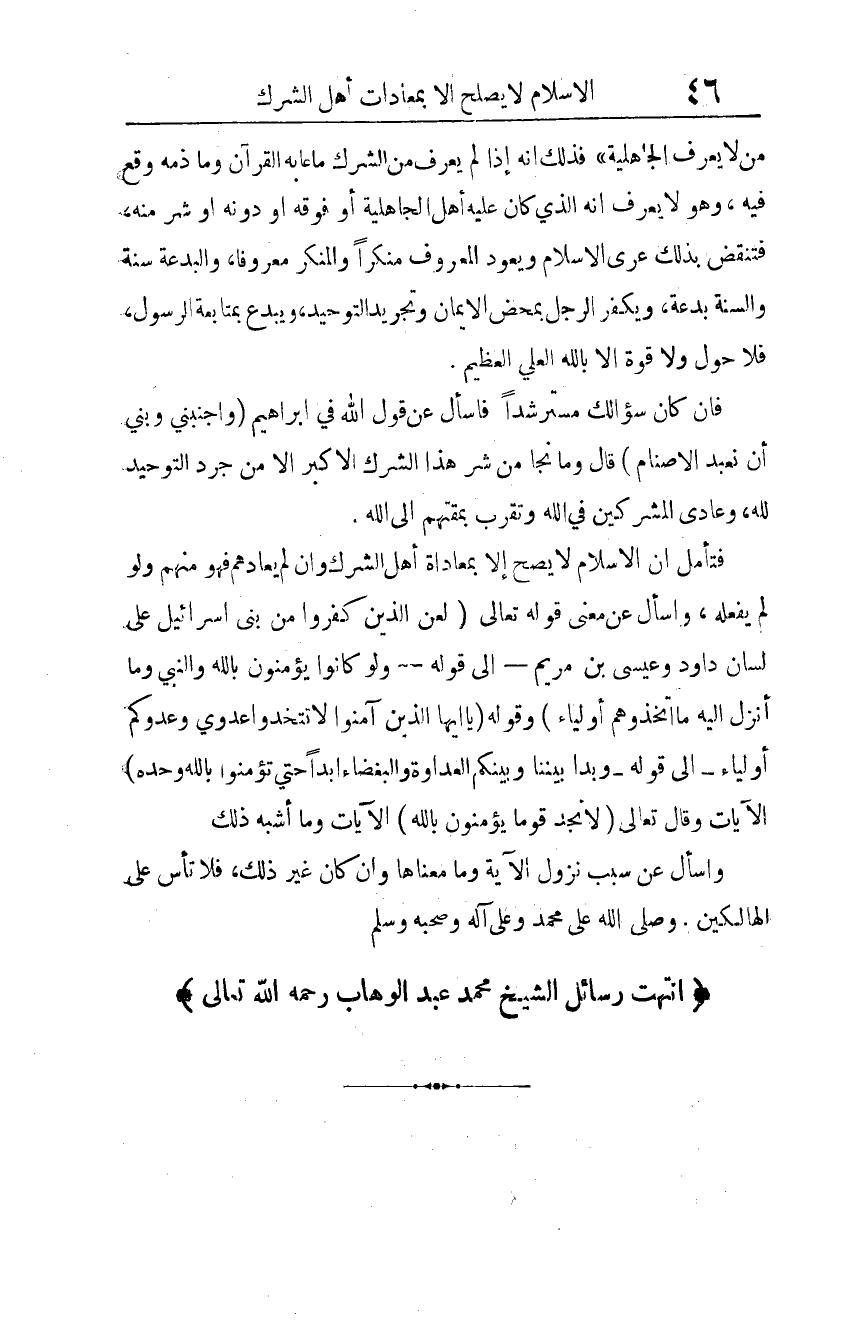 ٤٦ الاسلام لا يصلح الا بمعادات أهل الشرك
من لا يعرف الجاهلية» فذلك انه إذا لم يعرف من الشرك ما عابه القرآن وما ذمه وقع
فيه ، وهو لا يعرف انه الذي كان عليه أهل الجاهلية أو فوقه او دونه او شر منه،
فتنقض بذلك عرى الاسلام ويعود المعروف منكراً والمنكر معروفا، والبدعة سنة
والسنة بدعة، ويكفر الرجل بمحض الايمان وتجريد التوحيد، ويبدع بمتابعة الرسول،
فلا حول ولا قوة الا بالله العلي العظيم .
فان كان سؤالك مسترشداً فاسأل عن قول الله في ابراهيم (واجنبني وبني
أن نعبد الاصنام ) قال وما نجا من شر هذا الشرك الاكبر الا من جرد التوحيد
لله، وعادى المشركين في الله وتقرب بمقتهم الى الله .
فتأمل ان الاسلام لا يصح إلا بمعاداة أهل الشرك وان لم يعادهم فهو منهم ولو
لم يفعله ، واسأل عن معنى قوله تعالى ( لعن الذين كفروا من بنى اسرائيل على
لسان داود وعيسى بن مريم — الى قوله -- ولو كانوا يؤمنون بالله والنبي وما
أنزل اليه ما اتخذوهم أولياء ) وقوله (يا ايها الذين آمنوا لا تتخذوا عدوي وعدوكم
أولياء ــ الى قوله ــ وبدا بيننا وبينكم العداوة والبغضاء ابداً حتي تؤمنوا بالله وحده)
الآيات وقال تعالى ( لا تجد قوما يؤمنون بالله ) الآيات وما أشبه ذلك
واسأل عن سبب نزول الآية وما معناها وان كان غير ذلك، فلا تأس على
الهالكين . وصلى الله على محمد وعلى آله وصحبه وسلم
﴿ انتهت رسائل الشيخ محمد عبد الوهاب رحمه الله تعالى ﴾